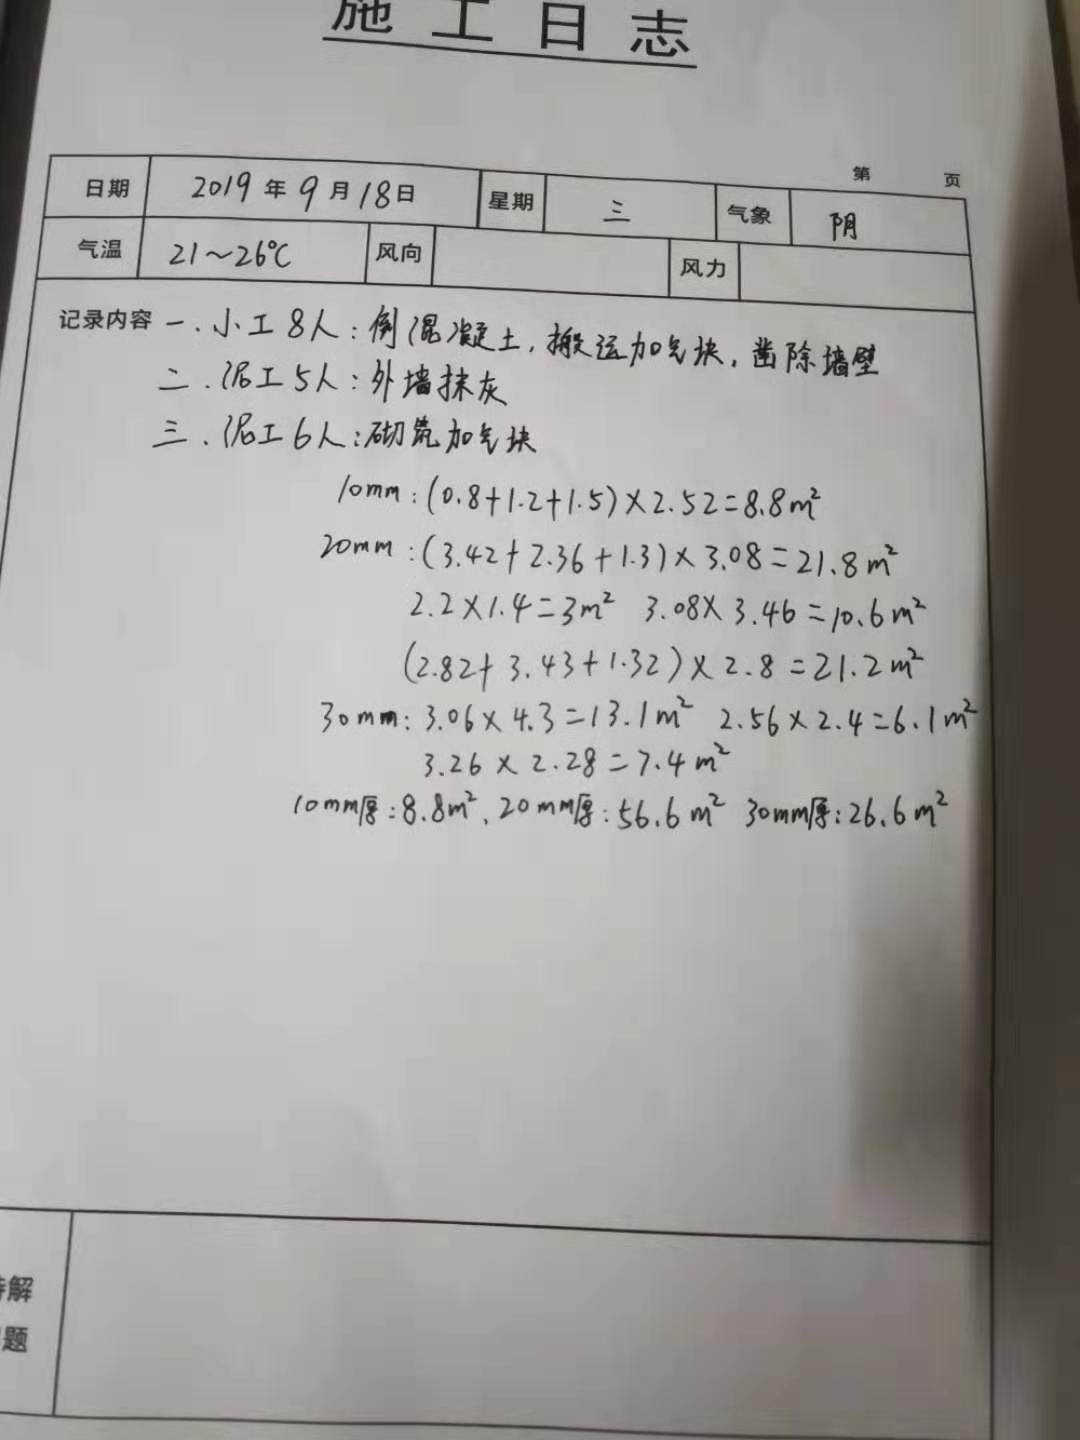 施工日志
第 页
日期 2019年9月18日 星期 三 气象 阴
气温 21~26℃ 风向 风力
记录内容 一.小工8人:倒混凝土,搬运加气块,凿除墙壁
二.泥工5人:外墙抹灰
三.泥工6人:砌筑加气块
10mm:(0.8+1.2+1.5)×2.52=8.8m²
20mm:(3.42+2.36+1.3)×3.08=21.8m²
2.2×1.4=3m² 3.08×3.46=10.6m²
(2.82+3.43+1.32)×2.8=21.2m²
30mm:3.06×4.3=13.1m² 2.56×2.4=6.1m²
3.26×2.28=7.4m²
10mm厚:8.8m²、20mm厚:56.6m² 30mm厚:26.6m²
待解
题